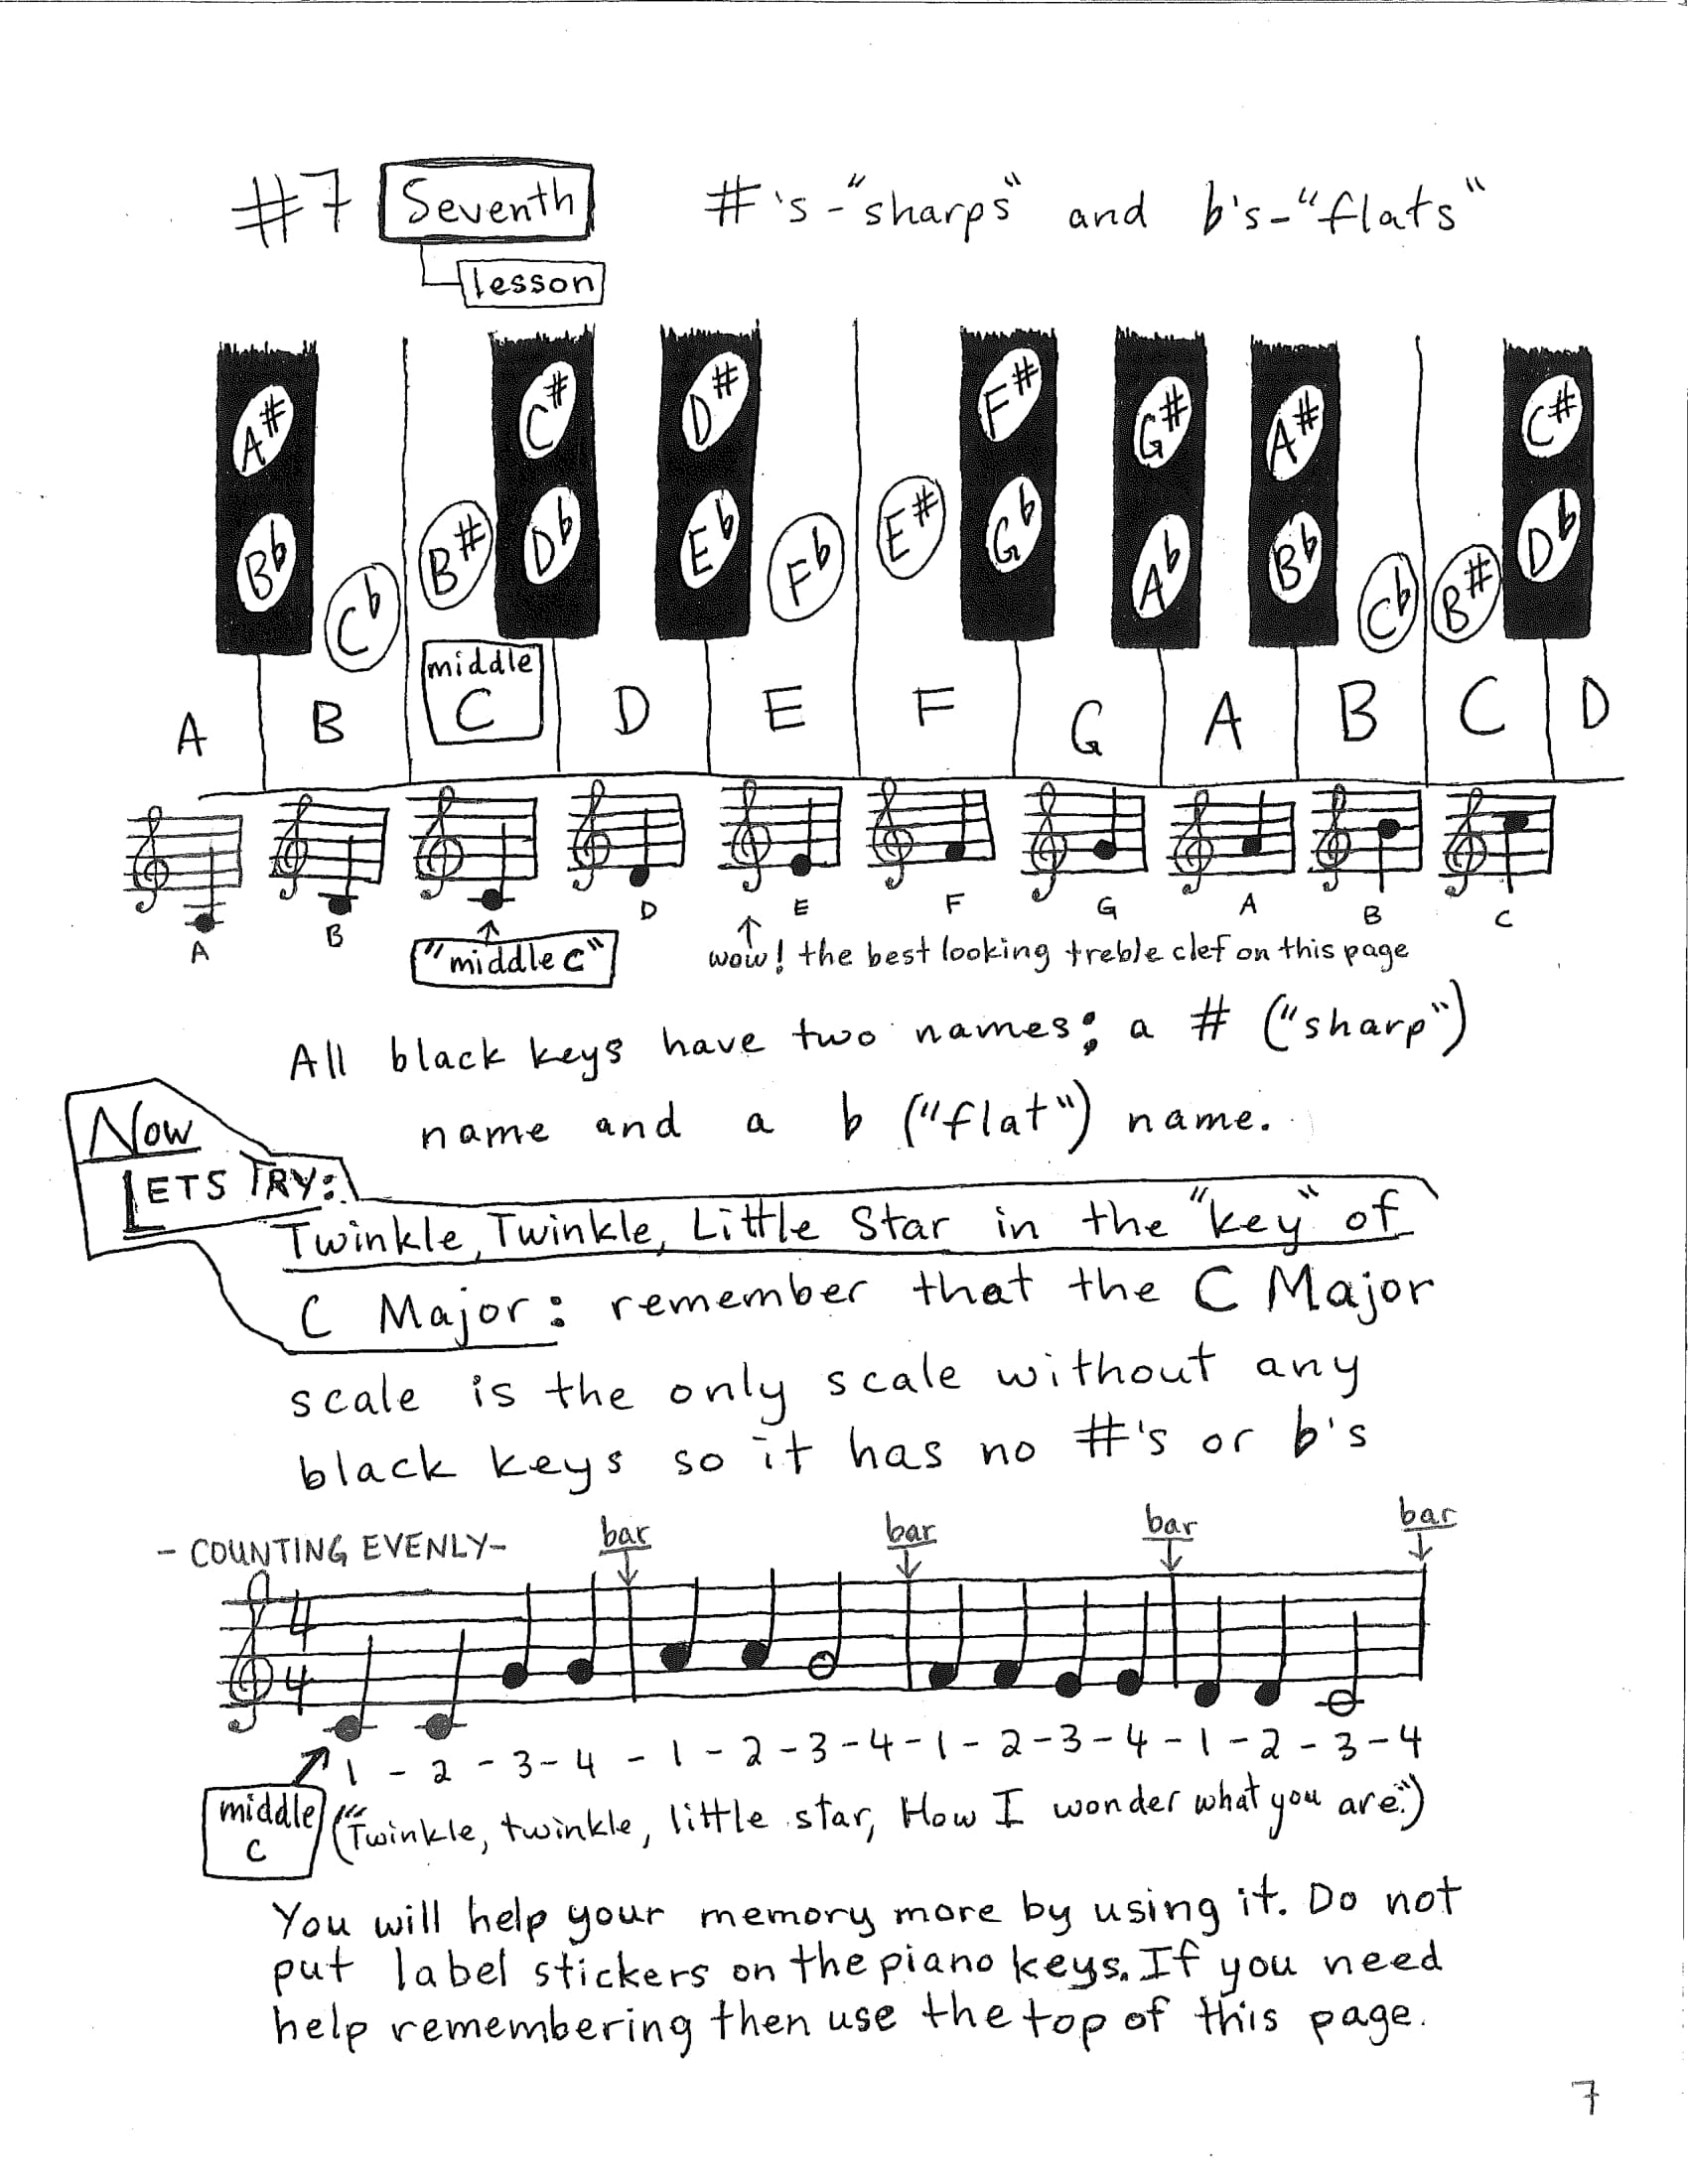 #7 Seventh #'s-"sharps" and b's-"flats"
lesson
A# C# D# F# G# A# C#
Bb Cb B# Db Eb Fb E# Gb Ab Bb Cb B# Db
A B middle C D E F G A B C D
A B D E F G A B C
"middle C" wow! the best looking treble clef on this page
All black keys have two names; a # ("sharp")
name and a b ("flat") name.
Now
LETS TRY:
Twinkle, Twinkle, Little Star in the "key" of
C Major: remember that the C Major
scale is the only scale without any
black keys so it has no #'s or b's
- COUNTING EVENLY- bar bar bar bar
4
4
1 - 2 - 3 - 4 - 1 - 2 - 3 - 4 - 1 - 2 - 3 - 4 - 1 - 2 - 3 - 4
middle C ("Twinkle, twinkle, little star, How I wonder what you are.")
You will help your memory more by using it. Do not
put label stickers on the piano keys. If you need
help remembering then use the top of this page.
7